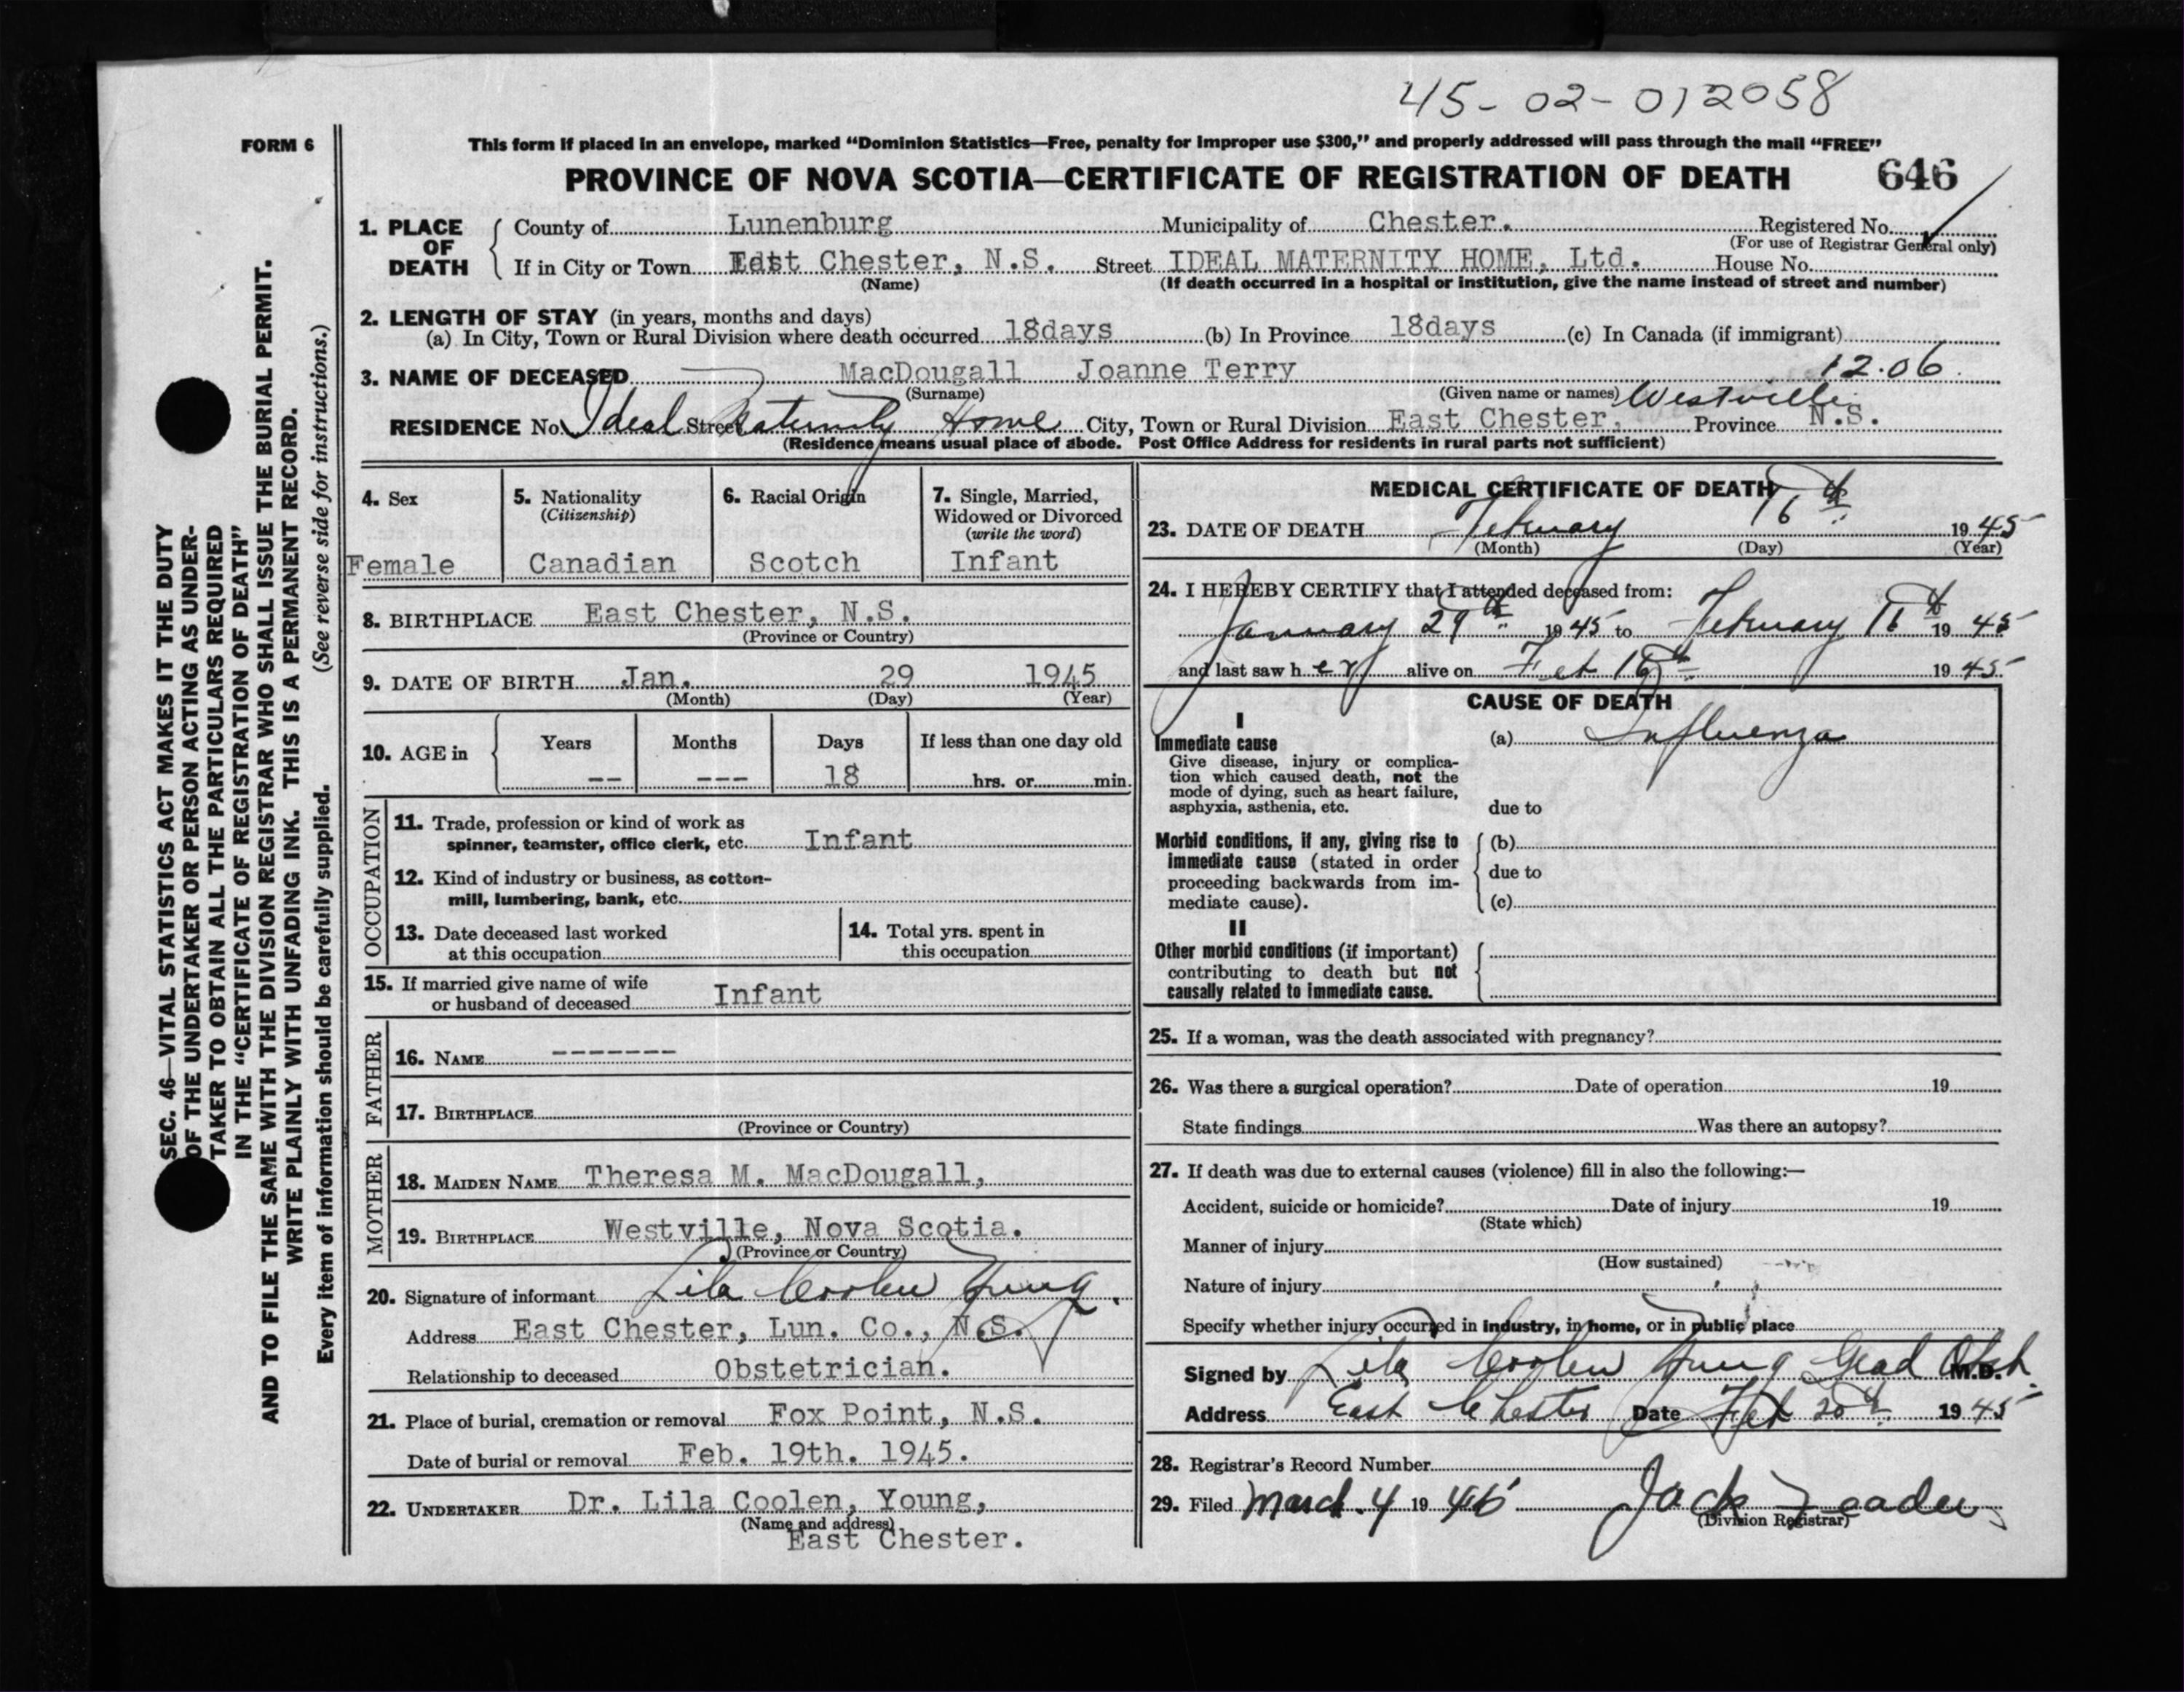 45-02-012058
FORM 6
This form if placed in an envelope, marked "Dominion Statistics—Free, penalty for improper use $300," and properly addressed will pass through the mail "FREE"
PROVINCE OF NOVA SCOTIA—CERTIFICATE OF REGISTRATION OF DEATH 646
1. PLACE OF DEATH
County of Lunenburg Municipality of Chester. Registered No.
(For use of Registrar General only)
If in City or Town East Chester, N.S. Street IDEAL MATERNITY HOME, Ltd. House No.
(Name) (If death occurred in a hospital or institution, give the name instead of street and number)
2. LENGTH OF STAY (in years, months and days)
(a) In City, Town or Rural Division where death occurred 18days (b) In Province 18days (c) In Canada (if immigrant)
12.06
3. NAME OF DECEASED MacDougall Joanne Terry
(Surname) (Given name or names)
Westville
RESIDENCE No. Ideal Street Maternity Home City, Town or Rural Division East Chester, Province N.S.
(Residence means usual place of abode. Post Office Address for residents in rural parts not sufficient)
4. Sex
Female
5. Nationality
(Citizenship)
Canadian
6. Racial Origin
Scotch
7. Single, Married,
Widowed or Divorced
(write the word)
Infant
8. BIRTHPLACE East Chester, N.S.
(Province or Country)
9. DATE OF BIRTH Jan. 29 1945
(Month) (Day) (Year)
10. AGE in Years Months Days If less than one day old
-- --- 18 hrs. or min.
OCCUPATION
11. Trade, profession or kind of work as
spinner, teamster, office clerk, etc. Infant
12. Kind of industry or business, as cotton-
mill, lumbering, bank, etc.
13. Date deceased last worked
at this occupation
14. Total yrs. spent in
this occupation
15. If married give name of wife
or husband of deceased Infant
FATHER
16. NAME -------
17. BIRTHPLACE
(Province or Country)
MOTHER
18. MAIDEN NAME Theresa M. MacDougall,
19. BIRTHPLACE Westville, Nova Scotia.
(Province or Country)
20. Signature of informant Lila Coolen Young.
Address East Chester, Lun. Co., N.S.
Relationship to deceased Obstetrician.
21. Place of burial, cremation or removal Fox Point, N.S.
Date of burial or removal Feb. 19th. 1945.
22. UNDERTAKER Dr. Lila Coolen, Young,
(Name and address)
East Chester.
MEDICAL CERTIFICATE OF DEATH
23. DATE OF DEATH February 16th 1945
(Month) (Day) (Year)
24. I HEREBY CERTIFY that I attended deceased from:
January 29th 1945 to February 16th 1945
and last saw her alive on Feb 16th 1945
CAUSE OF DEATH
I
Immediate cause
Give disease, injury or complica-
tion which caused death, not the
mode of dying, such as heart failure,
asphyxia, asthenia, etc.
(a) Influenza
due to
Morbid conditions, if any, giving rise to
immediate cause (stated in order
proceeding backwards from im-
mediate cause).
(b)
due to
(c)
II
Other morbid conditions (if important)
contributing to death but not
causally related to immediate cause.
25. If a woman, was the death associated with pregnancy?
26. Was there a surgical operation? Date of operation 19
State findings Was there an autopsy?
27. If death was due to external causes (violence) fill in also the following:—
Accident, suicide or homicide? Date of injury 19
(State which)
Manner of injury
(How sustained)
Nature of injury
Specify whether injury occurred in industry, in home, or in public place
Signed by Lila Coolen Young Grad Obst. M.D.
Address East Chester Date Feb 20th 1945
28. Registrar's Record Number
29. Filed March 4 19
Jack
(Division Registrar)
SEC. 46—VITAL STATISTICS ACT MAKES IT THE DUTY
OF THE UNDERTAKER OR PERSON ACTING AS UNDER-
TAKER TO OBTAIN ALL THE PARTICULARS REQUIRED
IN THE "CERTIFICATE OF REGISTRATION OF DEATH"
AND TO FILE THE SAME WITH THE DIVISION REGISTRAR WHO SHALL ISSUE THE BURIAL PERMIT.
WRITE PLAINLY WITH UNFADING INK. THIS IS A PERMANENT RECORD.
Every item of information should be carefully supplied. (See reverse side for instructions.)